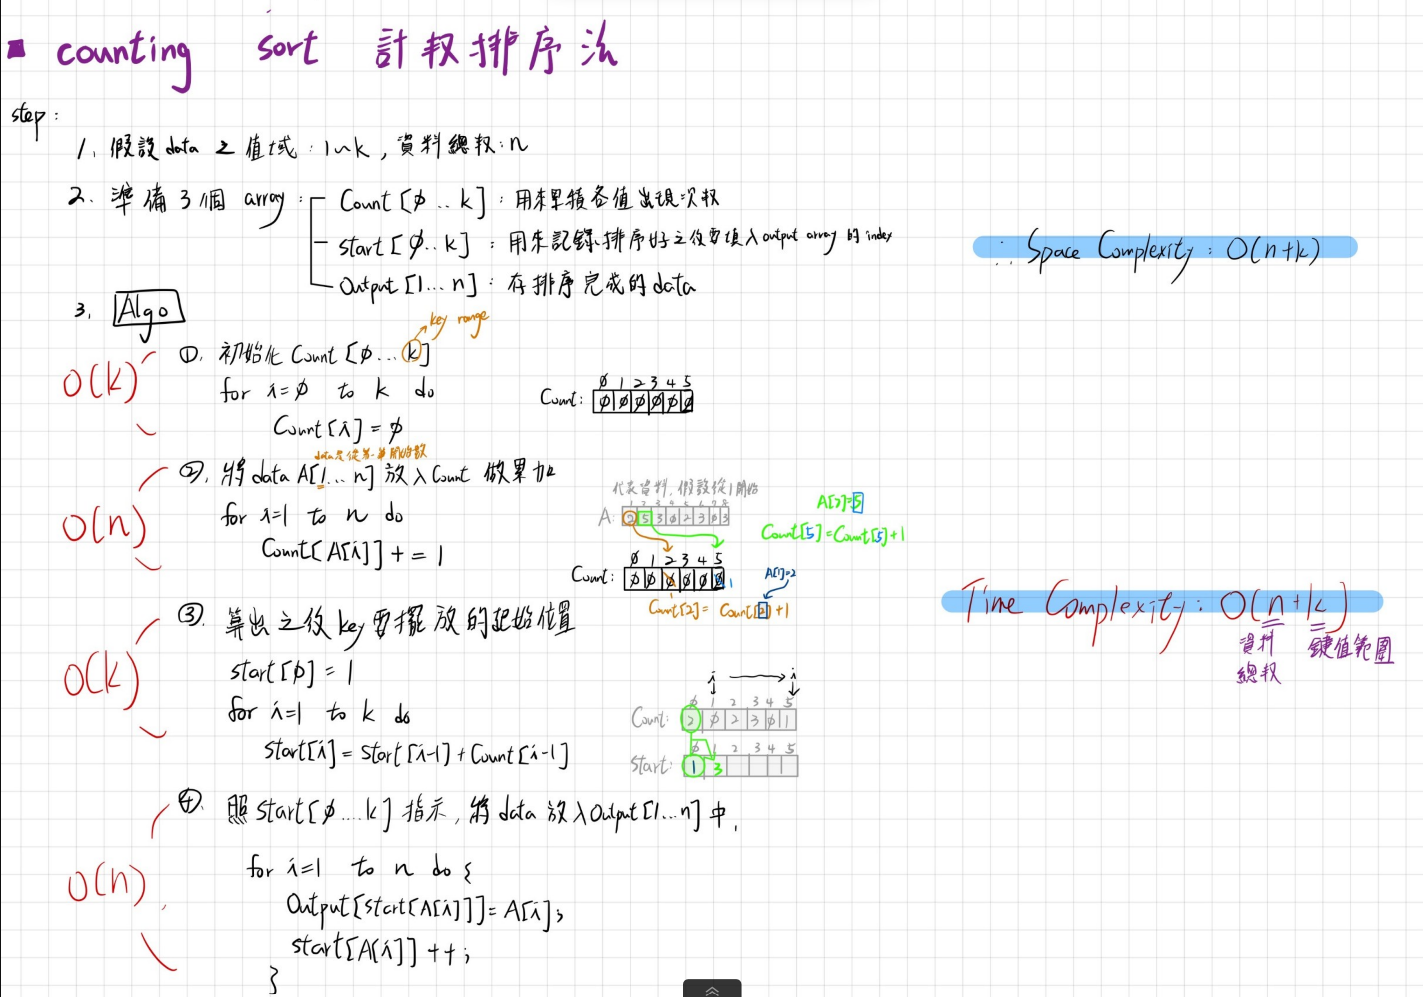 counting sort 計数排序法
step:
1. 假設 data 之值域: 1~k, 資料總数: n
2. 準備 3個 array:
Count [φ .. k] : 用來累積各值出現次数
start [φ .. k] : 用來記錄排序好之後要填入 output array 的 index
Output [1... n] : 存排序完成的 data
∴ Space Complexity: O(n+k)
3. Algo
key range
O(k)
①. 初始化 Count [φ... k]
for i=φ to k do
Count[i] = φ
φ 1 2 3 4 5
Count: φ φ φ φ φ φ
data是從第一筆開始數
O(n)
②. 將 data A[1... n] 放入 Count 做累加
for i=1 to n do
Count[A[i]] += 1
代表資料, 假設從1開始
1 2 3 4 5 6 7 8
A: 2 5 3 φ 2 3 φ 3
A[2]=5
Count[5]=Count[5]+1
φ 1 2 3 4 5
Count: φ φ φ φ φ φ
1 1
A[1]=2
Count[2]= Count[2]+1
Time Complexity: O(n+k)
資料總数
鍵值範圍
O(k)
③. 算出之後 key 要擺放的起始位置
start[φ] = 1
for i=1 to k do
start[i] = start[i-1] + Count[i-1]
i → i
φ 1 2 3 4 5
Count: 2 φ 2 3 φ 1
φ 1 2 3 4 5
start: 1 3
O(n)
④. 照 start[φ....k] 指示, 將 data 放入 Output[1...n] 中,
for i=1 to n do {
Output[start[A[i]]] = A[i];
start[A[i]] ++;
}